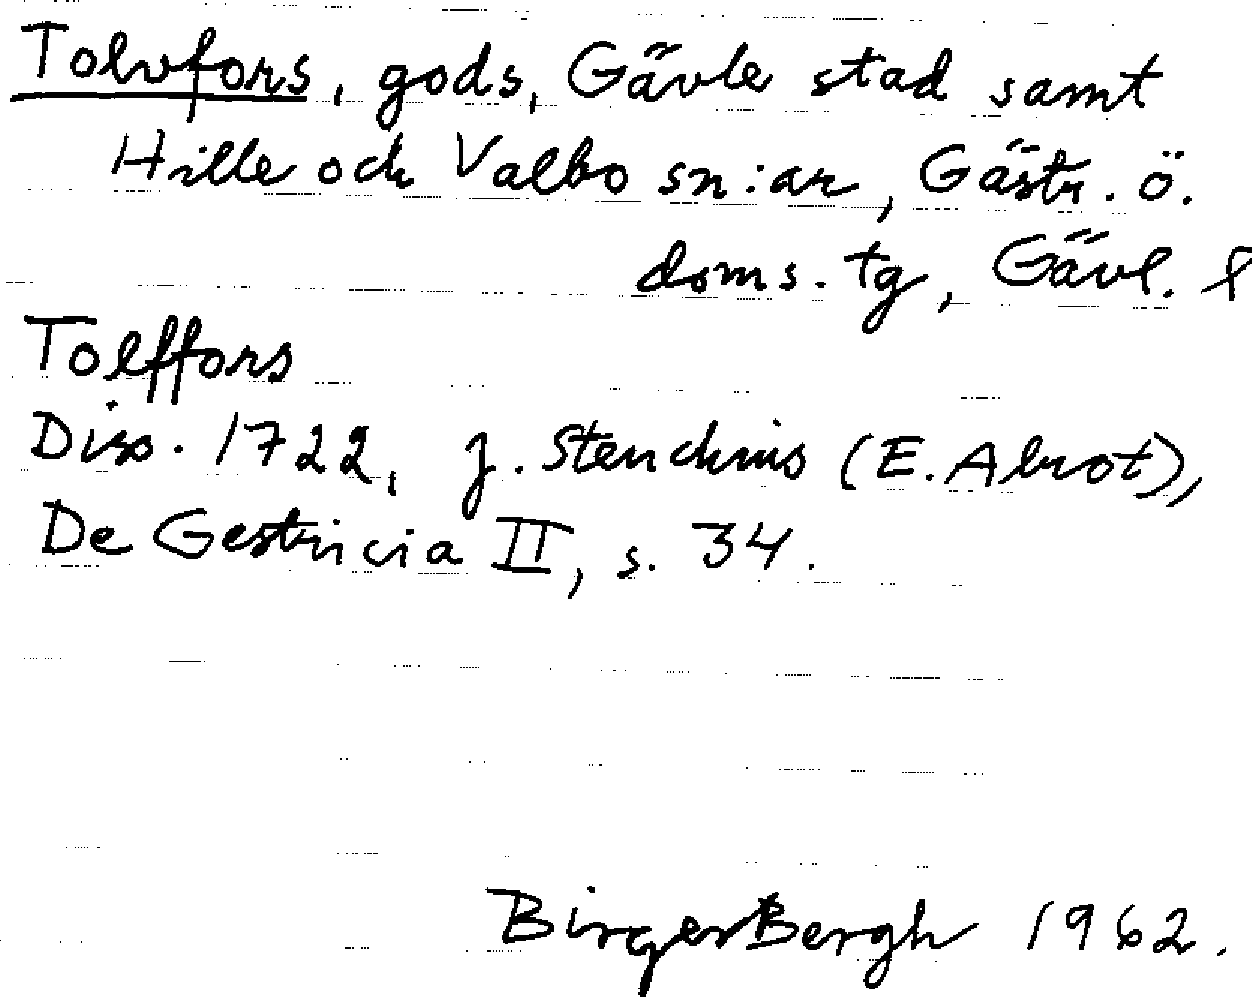 Tolvfors, gods, Gävle stad samt
Hille och Valbo sn:ar, Gästr. ö.
doms. tg, Gävl. l
Tolffors
Diss. 1722, J. Stenchius (E. Abrot),
De Gestricia II, s. 34.
Birger Bergh 1962.